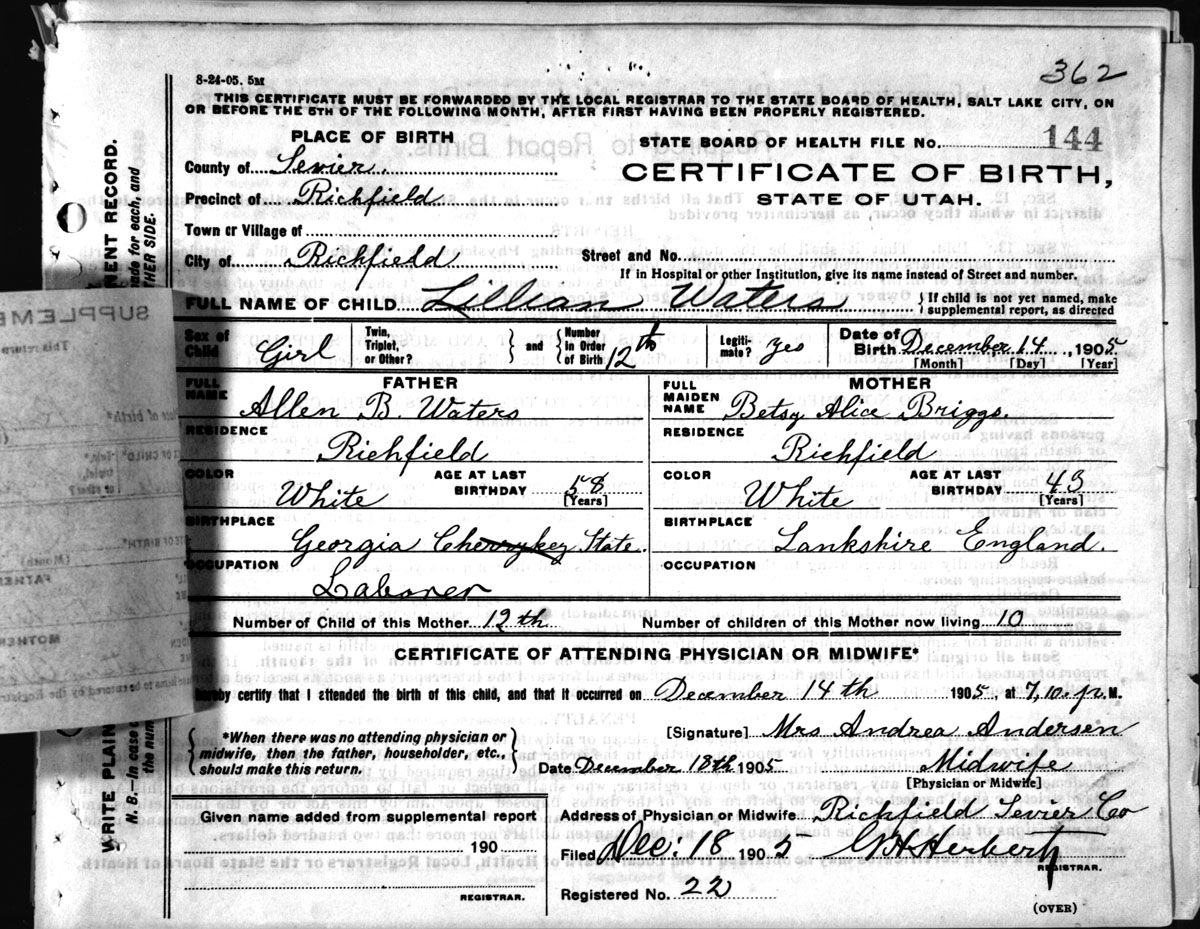 362
8-24-05. 5M
THIS CERTIFICATE MUST BE FORWARDED BY THE LOCAL REGISTRAR TO THE STATE BOARD OF HEALTH, SALT LAKE CITY, ON
OR BEFORE THE 5TH OF THE FOLLOWING MONTH, AFTER FIRST HAVING BEEN PROPERLY REGISTERED.
PLACE OF BIRTH
STATE BOARD OF HEALTH FILE No. 144
County of Sevier.
CERTIFICATE OF BIRTH,
Precinct of Richfield
STATE OF UTAH.
Town or Village of
City of Richfield
Street and No.
If in Hospital or other Institution, give its name instead of Street and number.
FULL NAME OF CHILD Lillian Waters { If child is not yet named, make
supplemental report, as directed
Sex of Child Girl
Twin, Triplet, or Other? } and { Number in Order of Birth 12th
Legitimate? yes
Date of Birth December 14, 1905
[Month] [Day] [Year]
FATHER
FULL NAME Allen B. Waters
RESIDENCE Richfield
COLOR White AGE AT LAST BIRTHDAY 58
[Years]
BIRTHPLACE Georgia Cherrykey State.
OCCUPATION Laborer
MOTHER
FULL MAIDEN NAME Betsy Alice Briggs.
RESIDENCE Richfield
COLOR White AGE AT LAST BIRTHDAY 43
[Years]
BIRTHPLACE Lankshire England.
OCCUPATION
Number of Child of this Mother 12th Number of children of this Mother now living 10
CERTIFICATE OF ATTENDING PHYSICIAN OR MIDWIFE*
hereby certify that I attended the birth of this child, and that it occurred on December 14th 1905, at 7,10. p. M.
{ *When there was no attending physician or
midwife, then the father, householder, etc.,
should make this return. }
[Signature] Mrs Andrea Andersen
Date December 18th 1905 Midwife
[Physician or Midwife]
Given name added from supplemental report
190
REGISTRAR.
Address of Physician or Midwife Richfield Sevier Co
Filed Dec: 18 1905 G H Herbert
REGISTRAR.
Registered No. 22
(OVER)
WRITE PLAIN
NENT RECORD.
N. B.—In case
made for each, and
the num
THER SIDE.
SUPPLEME